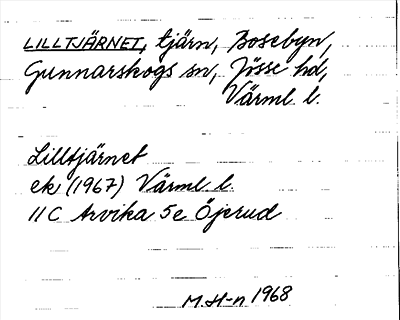 LILLTJÄRNET, tjärn, Bosebyn,
Gunnarskogs sn, Jösse hd,
Värml. l.
Lilltjärnet
ek (1967) Värml l.
11C Arvika 5e Öjerud
M. H-n 1968